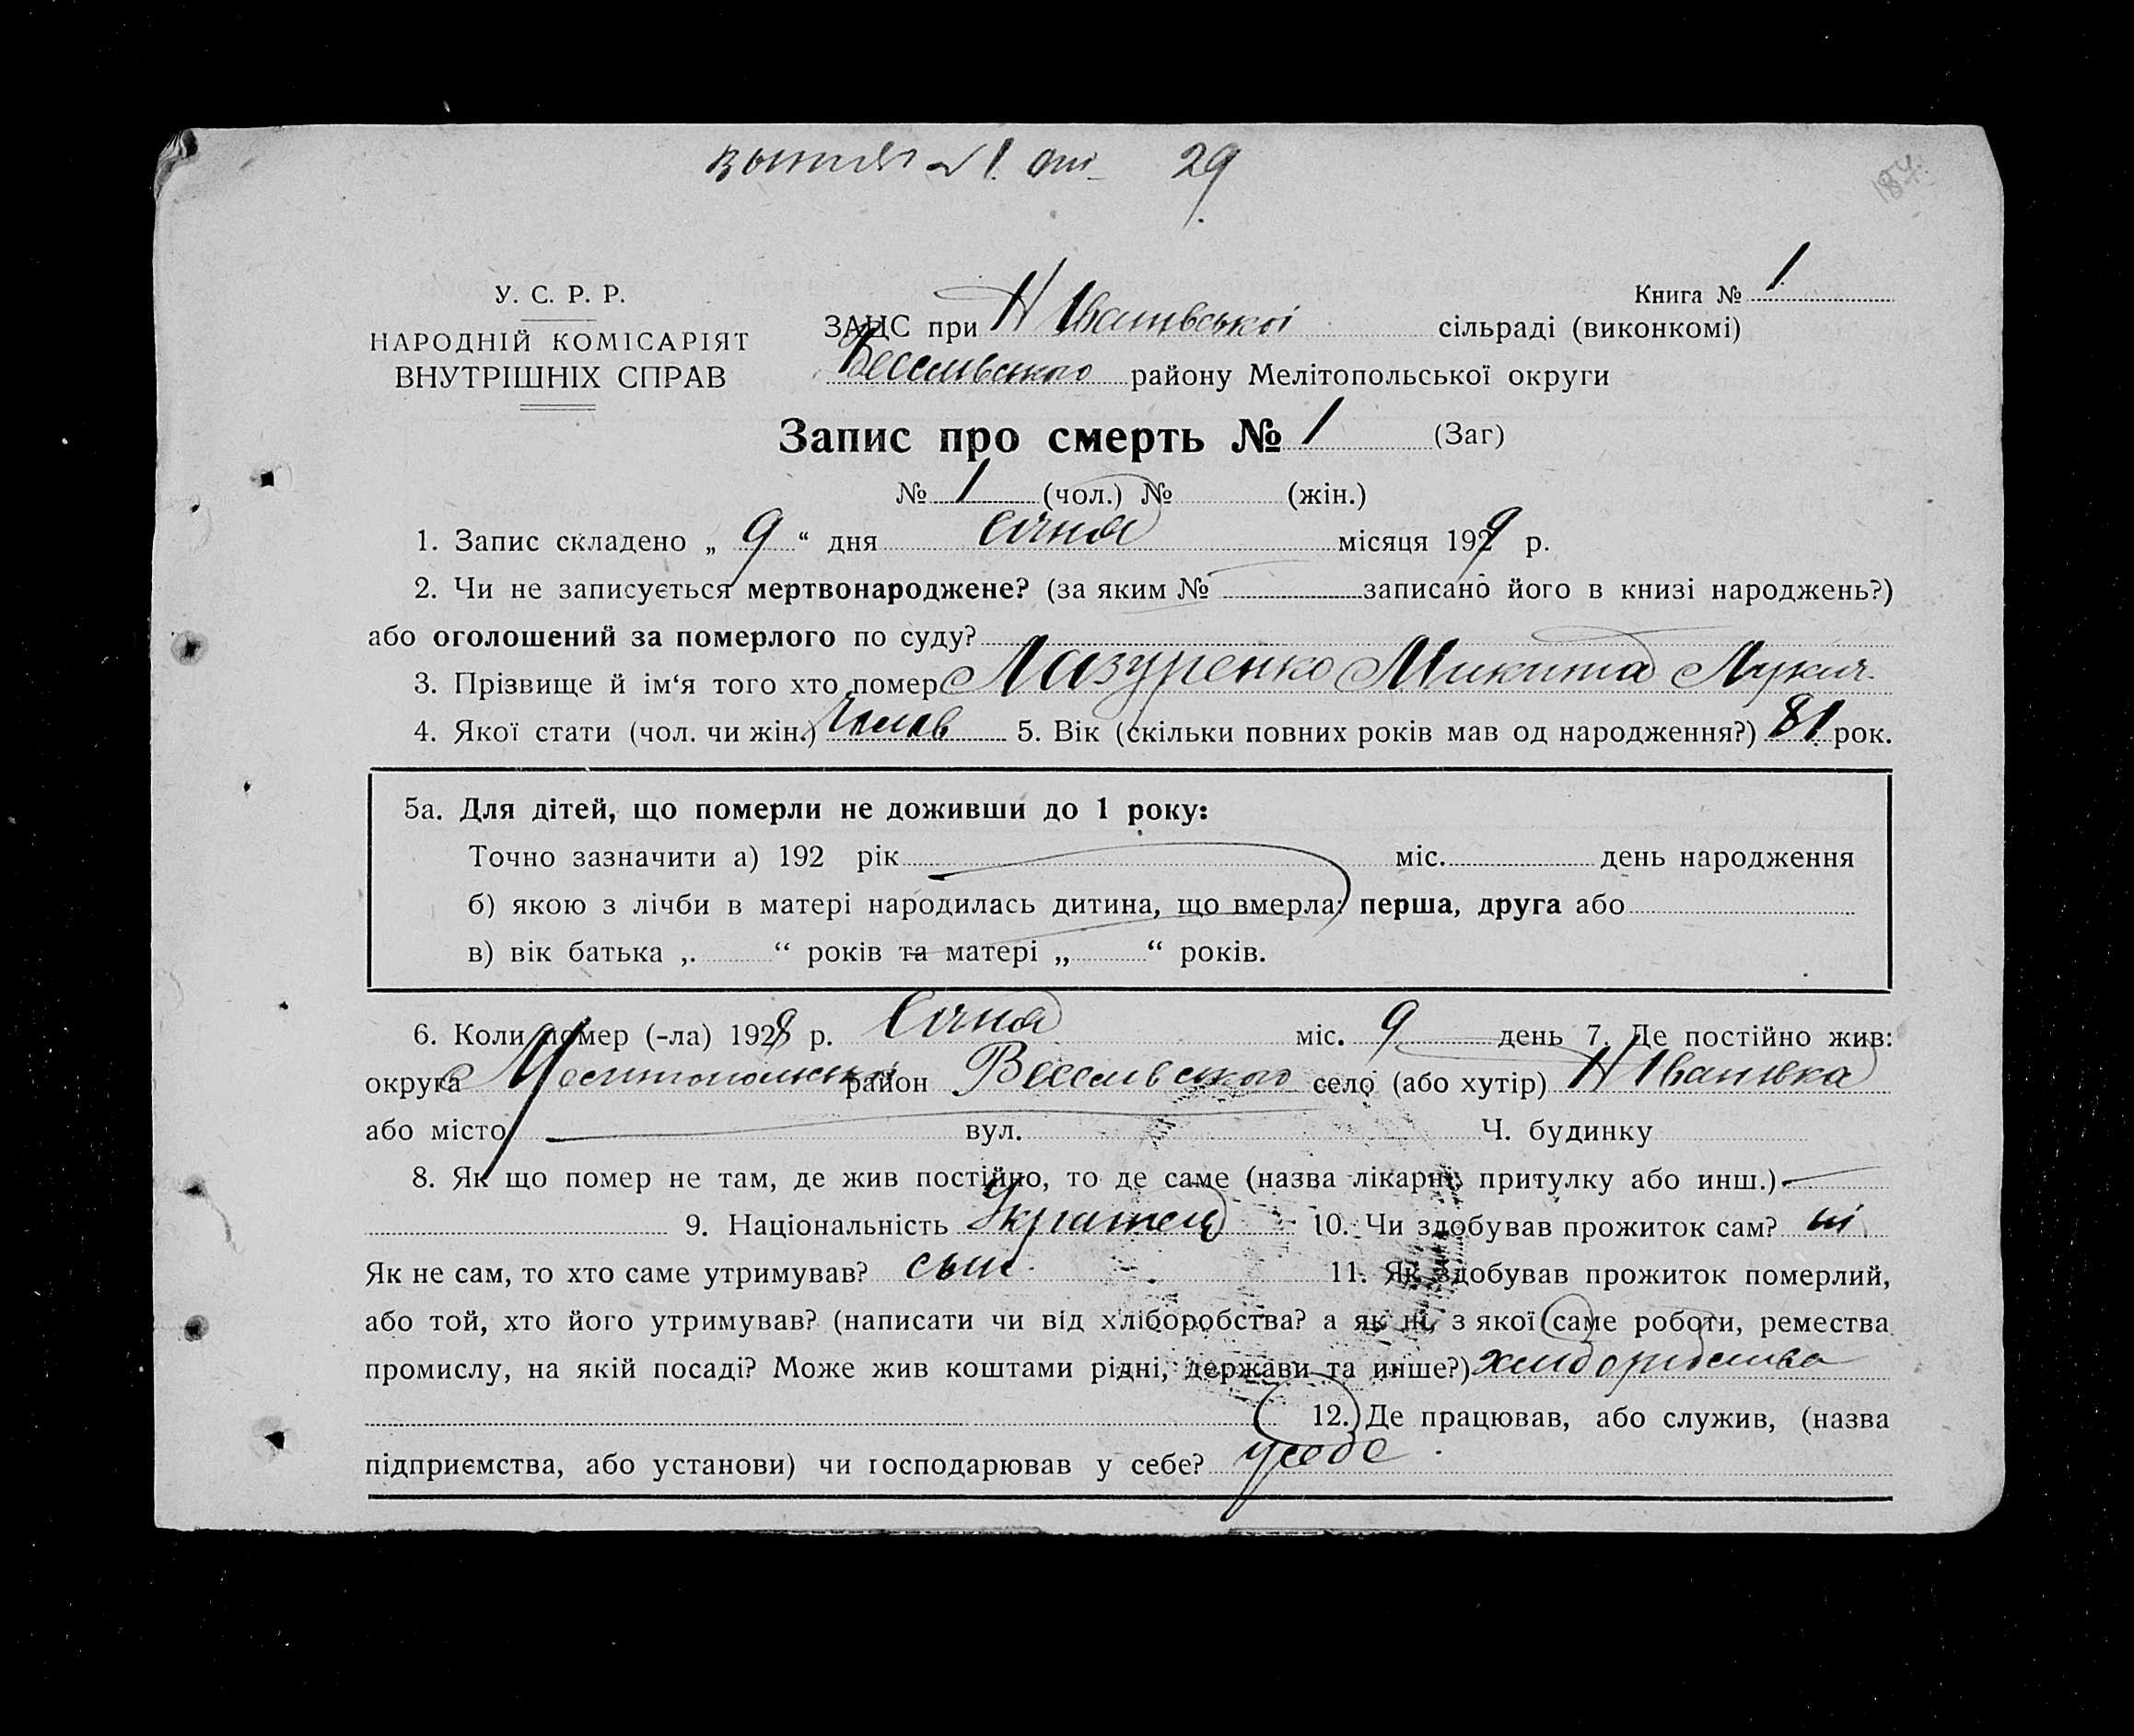 29
У. С. Р. Р.
Книга № 1
НАРОДНІЙ КОМІСАРІЯТ
ВНУТРІШНІХ СПРАВ
ЗАЦС при Н Іванівської сільраді (виконкомі)
Веселівського району Мелітопольської округи
Запис про смерть № 1 (Заг)
№ 1 (чол.) № (жін.)
1. Запис складено „ 9 “ дня Січня місяця 1929 р.
2. Чи не записується мертвонароджене? (за яким № записано його в книзі народжень?)
або оголошений за померлого по суду?
3. Прізвище й ім‘я того хто помер Лазуренко Микита Лукич
4. Якої стати (чол. чи жін.) Чолов 5. Вік (скільки повних років мав од народження?) 81 рок.
5а. Для дітей, що померли не доживши до 1 року:
Точно зазначити а) 192 рік міс. день народження
б) якою з лічби в матері народилась дитина, що вмерла: перша, друга або
в) вік батька „ “ років та матері „ “ років.
6. Коли помер (-ла) 1929 р. Січня міс. 9 день 7. Де постійно жив:
округа Мелітопольської район Веселівського село (або хутір) Н Іванівка
або місто вул. Ч. будинку
8. Як що помер не там, де жив постійно, то де саме (назва лікарні, притулку або инш.)
9. Національність Українець 10. Чи здобував прожиток сам? ні
Як не сам, то хто саме утримував? сын 11. Як здобував прожиток померлий,
або той, хто його утримував? (написати чи від хліборобства? а як ні, з якої саме роботи, ремества
промислу, на якій посаді? Може жив коштами рідні, держави та инше?) хліборобства
12. Де працював, або служив, (назва
підприємства, або установи) чи господарював у себе? у себе